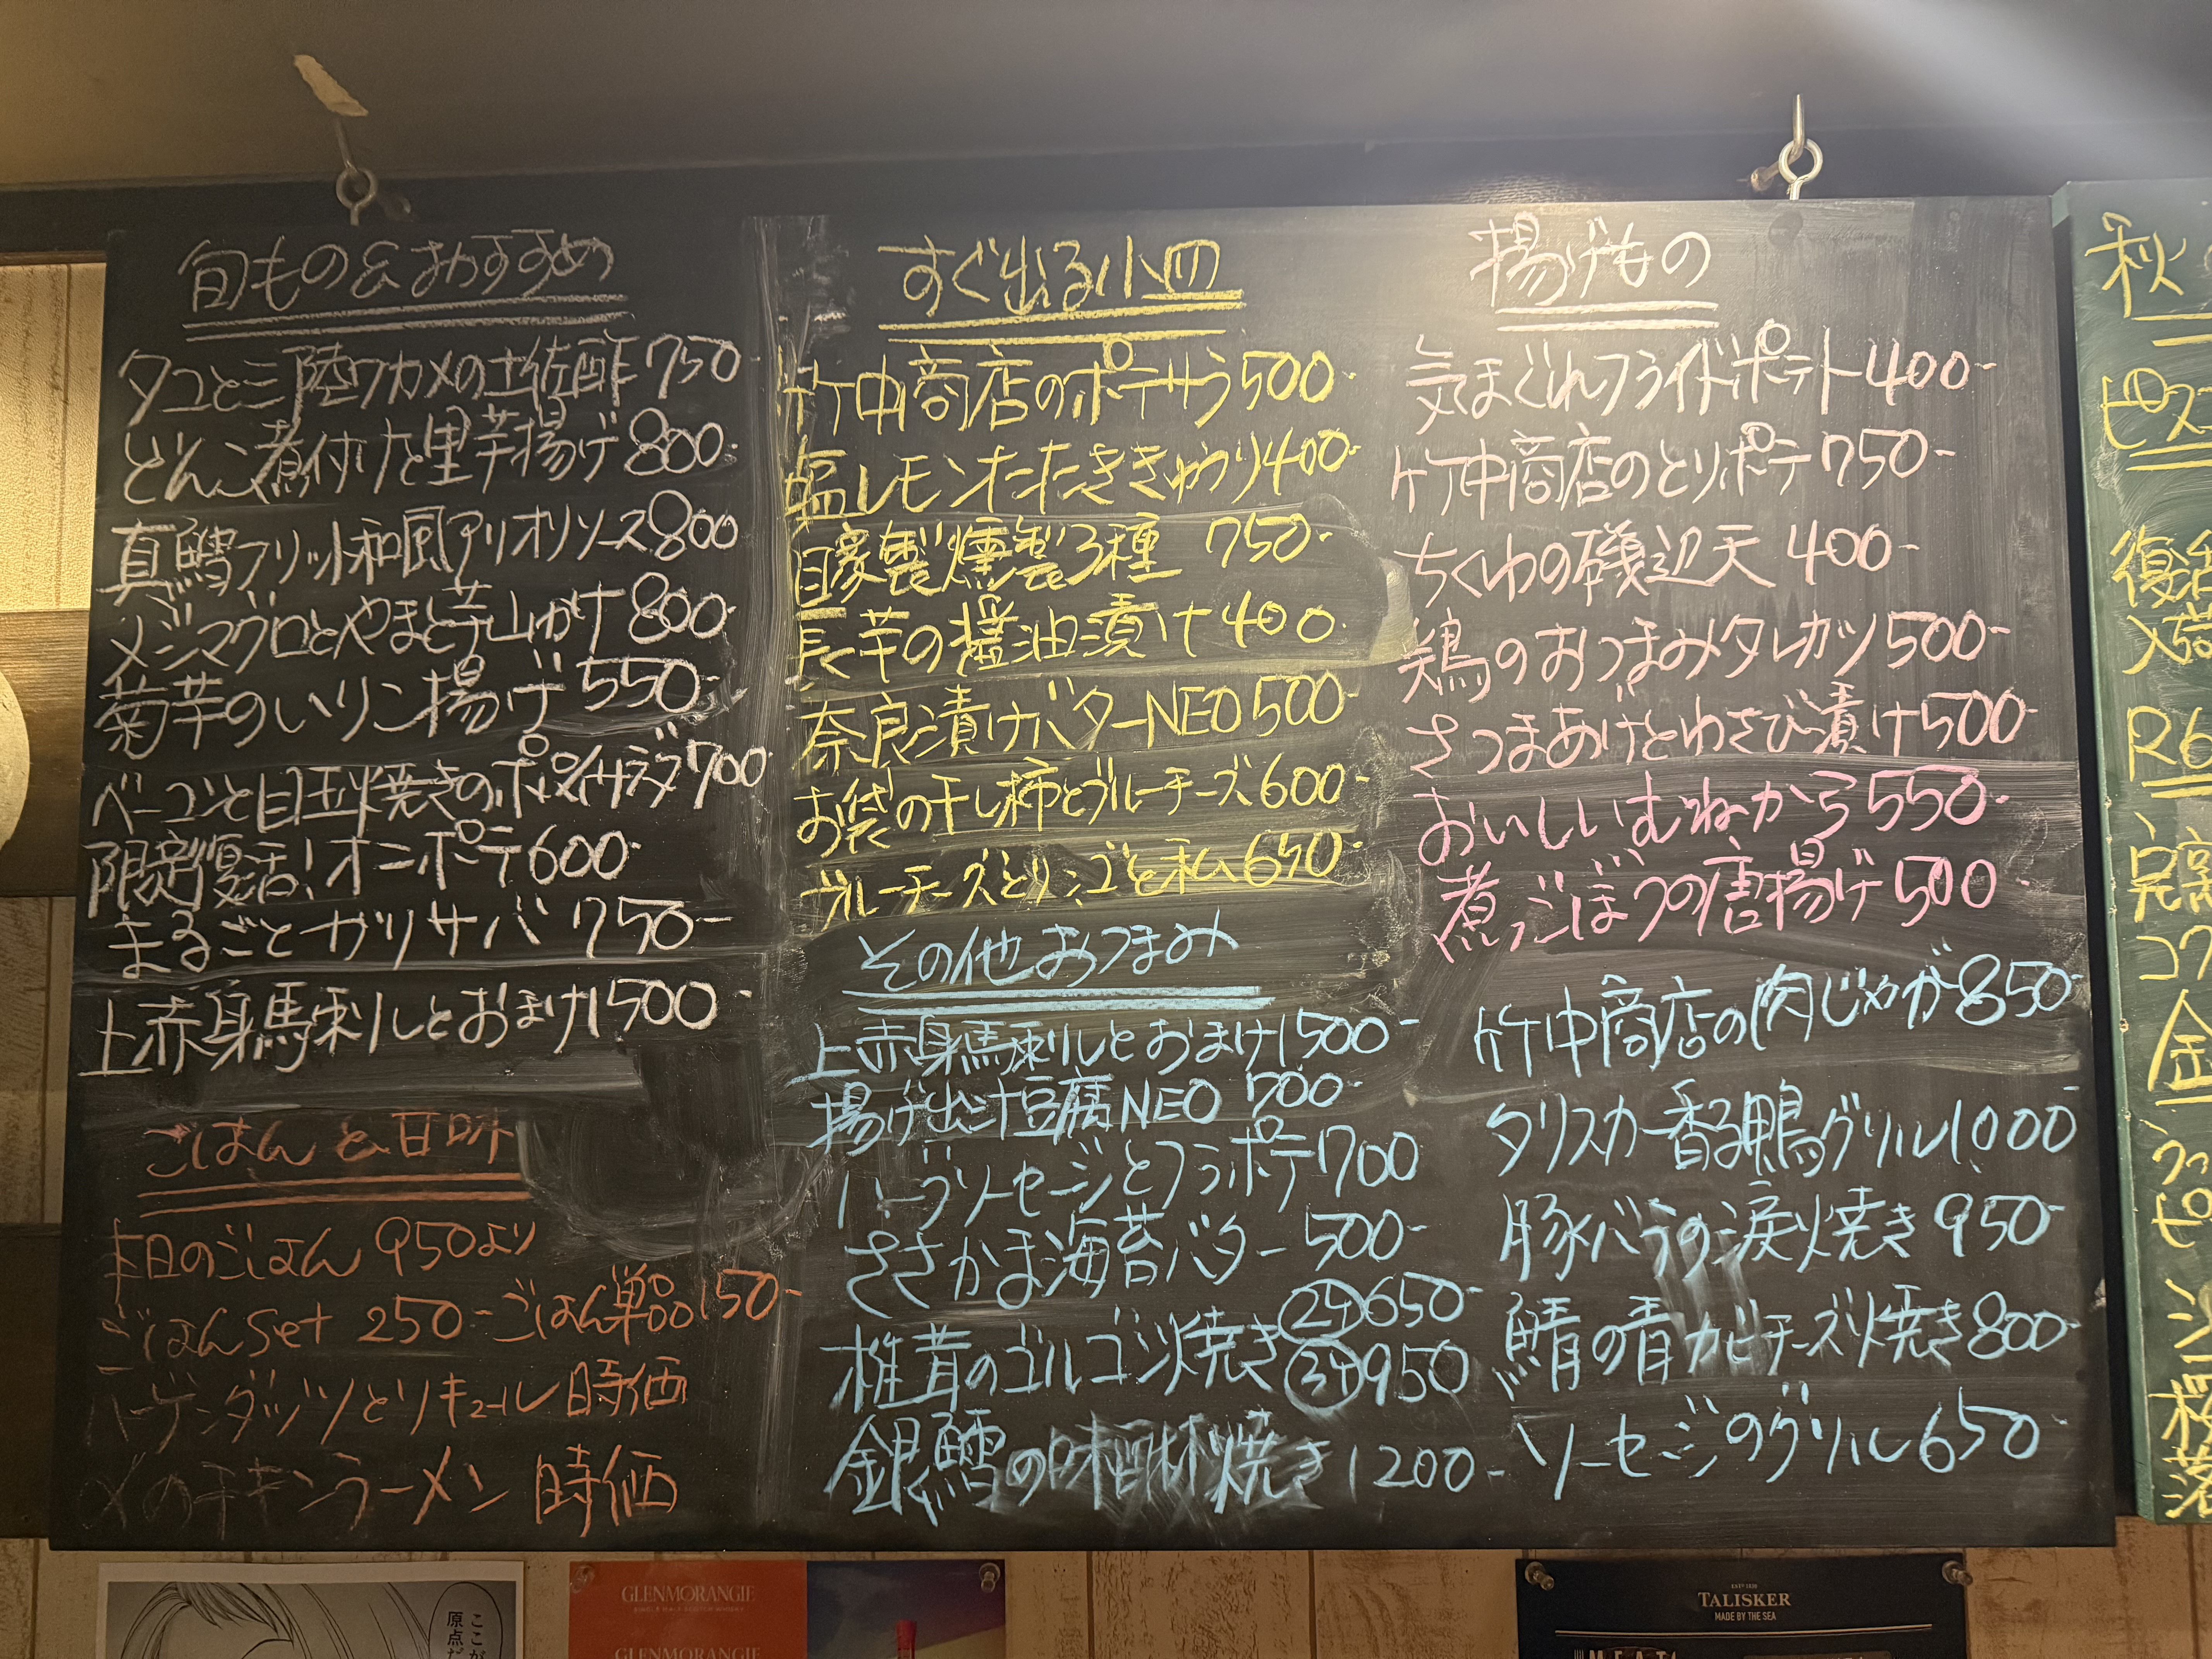 旬もの&おすすめ
タコと三陸ワカメの土佐酢750
どんこ煮付けと里芋揚げ800-
真鱈フリット和風アリオリソース800
メジマグロとやまと芋山かけ800-
菊芋のいりこ揚げ550-
ベーコンと目玉焼きのポパイサラダ700-
限定復活!オニポテ600-
まるごとガリサバ750-
上赤身馬刺しとおまけ1500-
ごはんと甘味
本日のごはん 950より
ごはんSet 250-ごはん単品150-
ハーゲンダッツとリキュール 時価
〆のチキンラーメン 時価
すぐ出る小皿
竹中商店のポテサラ500-
塩レモンたたききゅうり400-
自家製燻製3種 750-
長芋の醤油漬け400-
奈良漬けバターNEO500-
お袋の干し柿とブルーチーズ600-
ブルーチーズとリンゴと私650-
その他おつまみ
上赤身馬刺しとおまけ1500-
揚げ出し豆腐NEO 700-
ハーブソーセージとフラポテ700
ささかま海苔バター500-
椎茸のゴルゴンゾ焼き
2ヶ650-
3ヶ950
銀鱈の味醂焼き1200-
揚げもの
気まぐれフライドポテト400-
竹中商店のとりポテ750-
ちくわの磯辺天400-
鶏のおつまみタレカツ500-
さつまあげとわさび漬け500-
おいしいむねから550-
煮ごぼうの唐揚げ500-
竹中商店の肉じゃが850-
タリスカー香る鴨グリル1000-
豚バラの炭焼き950-
鯖の青カビチーズ焼き800-
ソーセージのグリル650-
秋
ピス
復活
入荷
R6
完高
コク
金
ピ
ここが
原点だ
GLENMORANGIE
GLENMORANGIE
TALISKER
MADE BY THE SEA
MEAT